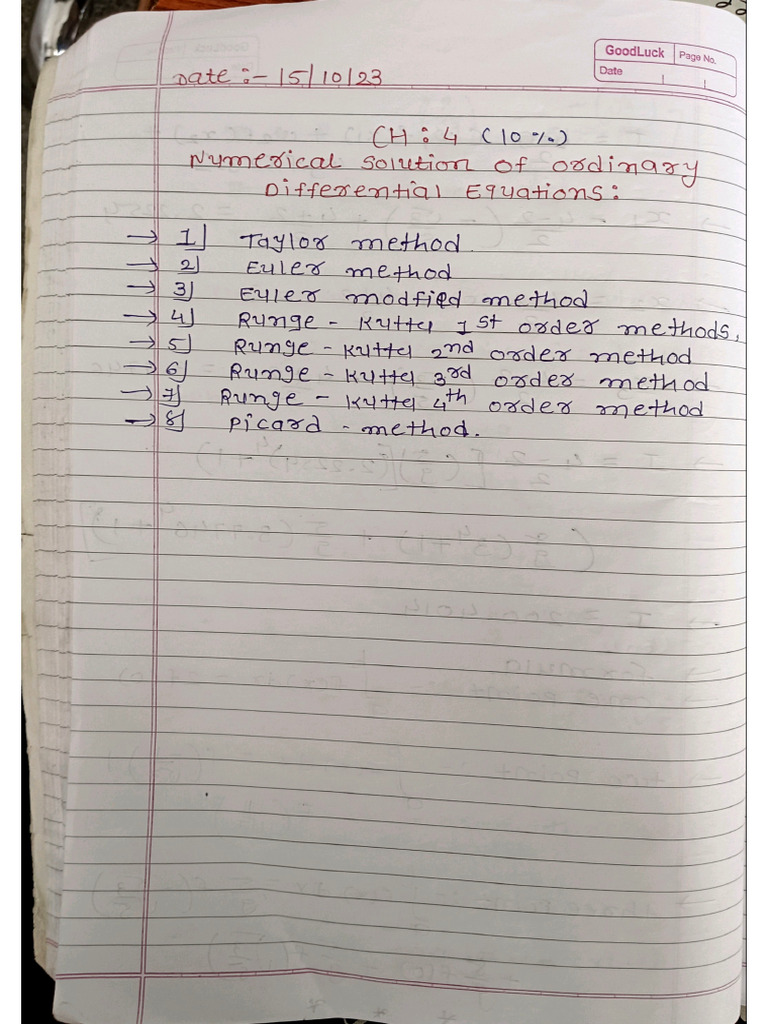 GoodLuck Page No.
Date
Date :- 15/10/23
CH : 4 (10 %)
Numerical Solution of Ordinary
Differential Equations :
→ 1] Taylor method
→ 2] Euler method
→ 3] Euler modfied method
→ 4] Runge - Kutta 1st order methods.
→ 5] Runge - Kutta 2nd order method
→ 6] Runge - Kutta 3rd order method
→ 7] Runge - Kutta 4th order method
→ 8] Picard - method.